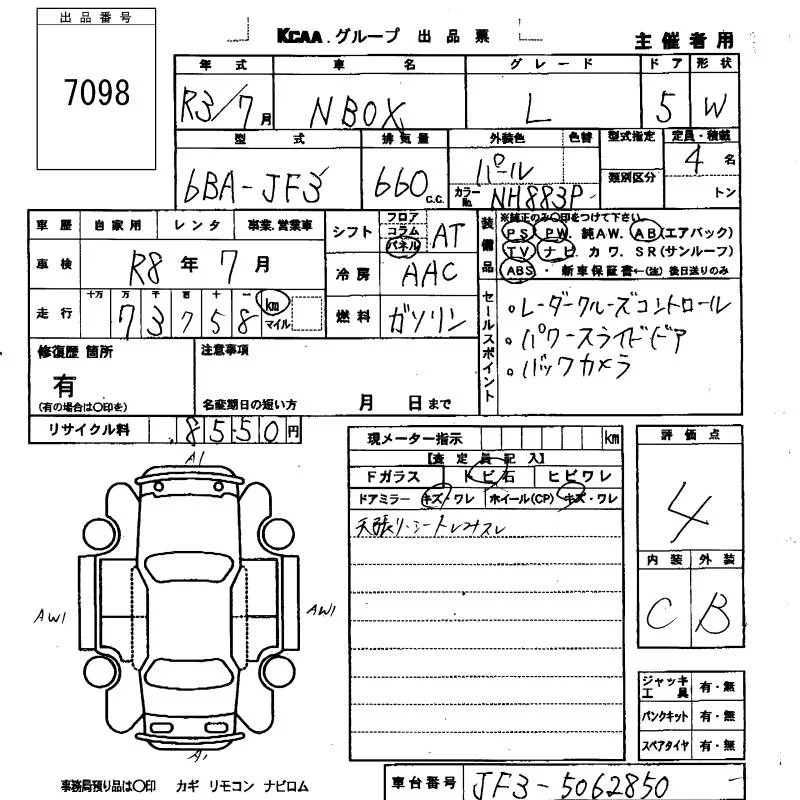 出品番号
7098
KCAA.グループ 出品票
主催者用
年式 車名 グレード ドア 形状
R3/7月 NBOX L 5 W
型式 排気量 外装色 色替 型式指定 定員・積載
6BA-JF3 660c.c. パール 類別区分 4名
カラーNo. NH883P トン
車歴 自家用 レンタ 事業.営業車
車検 R8年7月
走行 十万 万 千 百 十 一
73758 km マイル
シフト フロア コラム パネル AT
冷房 AAC
燃料 ガソリン
装備品
※純正のみ〇印をつけて下さい。
PS PW. 純AW. AB(エアバック)
TV ナビ. カワ. SR(サンルーフ)
ABS・新車保証書←(注)後日送りのみ
セールスポイント
・レーダークルーズコントロール
・パワースライドドア
・バックカメラ
修復歴 箇所
有
(有の場合は〇印を)
注意事項
名変期日の短い方 月 日まで
リサイクル料 8550円
現メーター指示 km
【査定員記入】
Fガラス トビ石 ヒビワレ
ドアミラー キズ・ワレ ホイール(CP) キズ・ワレ
天張り.シートレみスレ
評価点
4
内装 外装
C B
A1
AW1 AW1
A1
ジャッキ工具 有・無
パンクキット 有・無
スペアタイヤ 有・無
事務局預り品は〇印 カギ リモコン ナビロム
車台番号 JF3-5062850